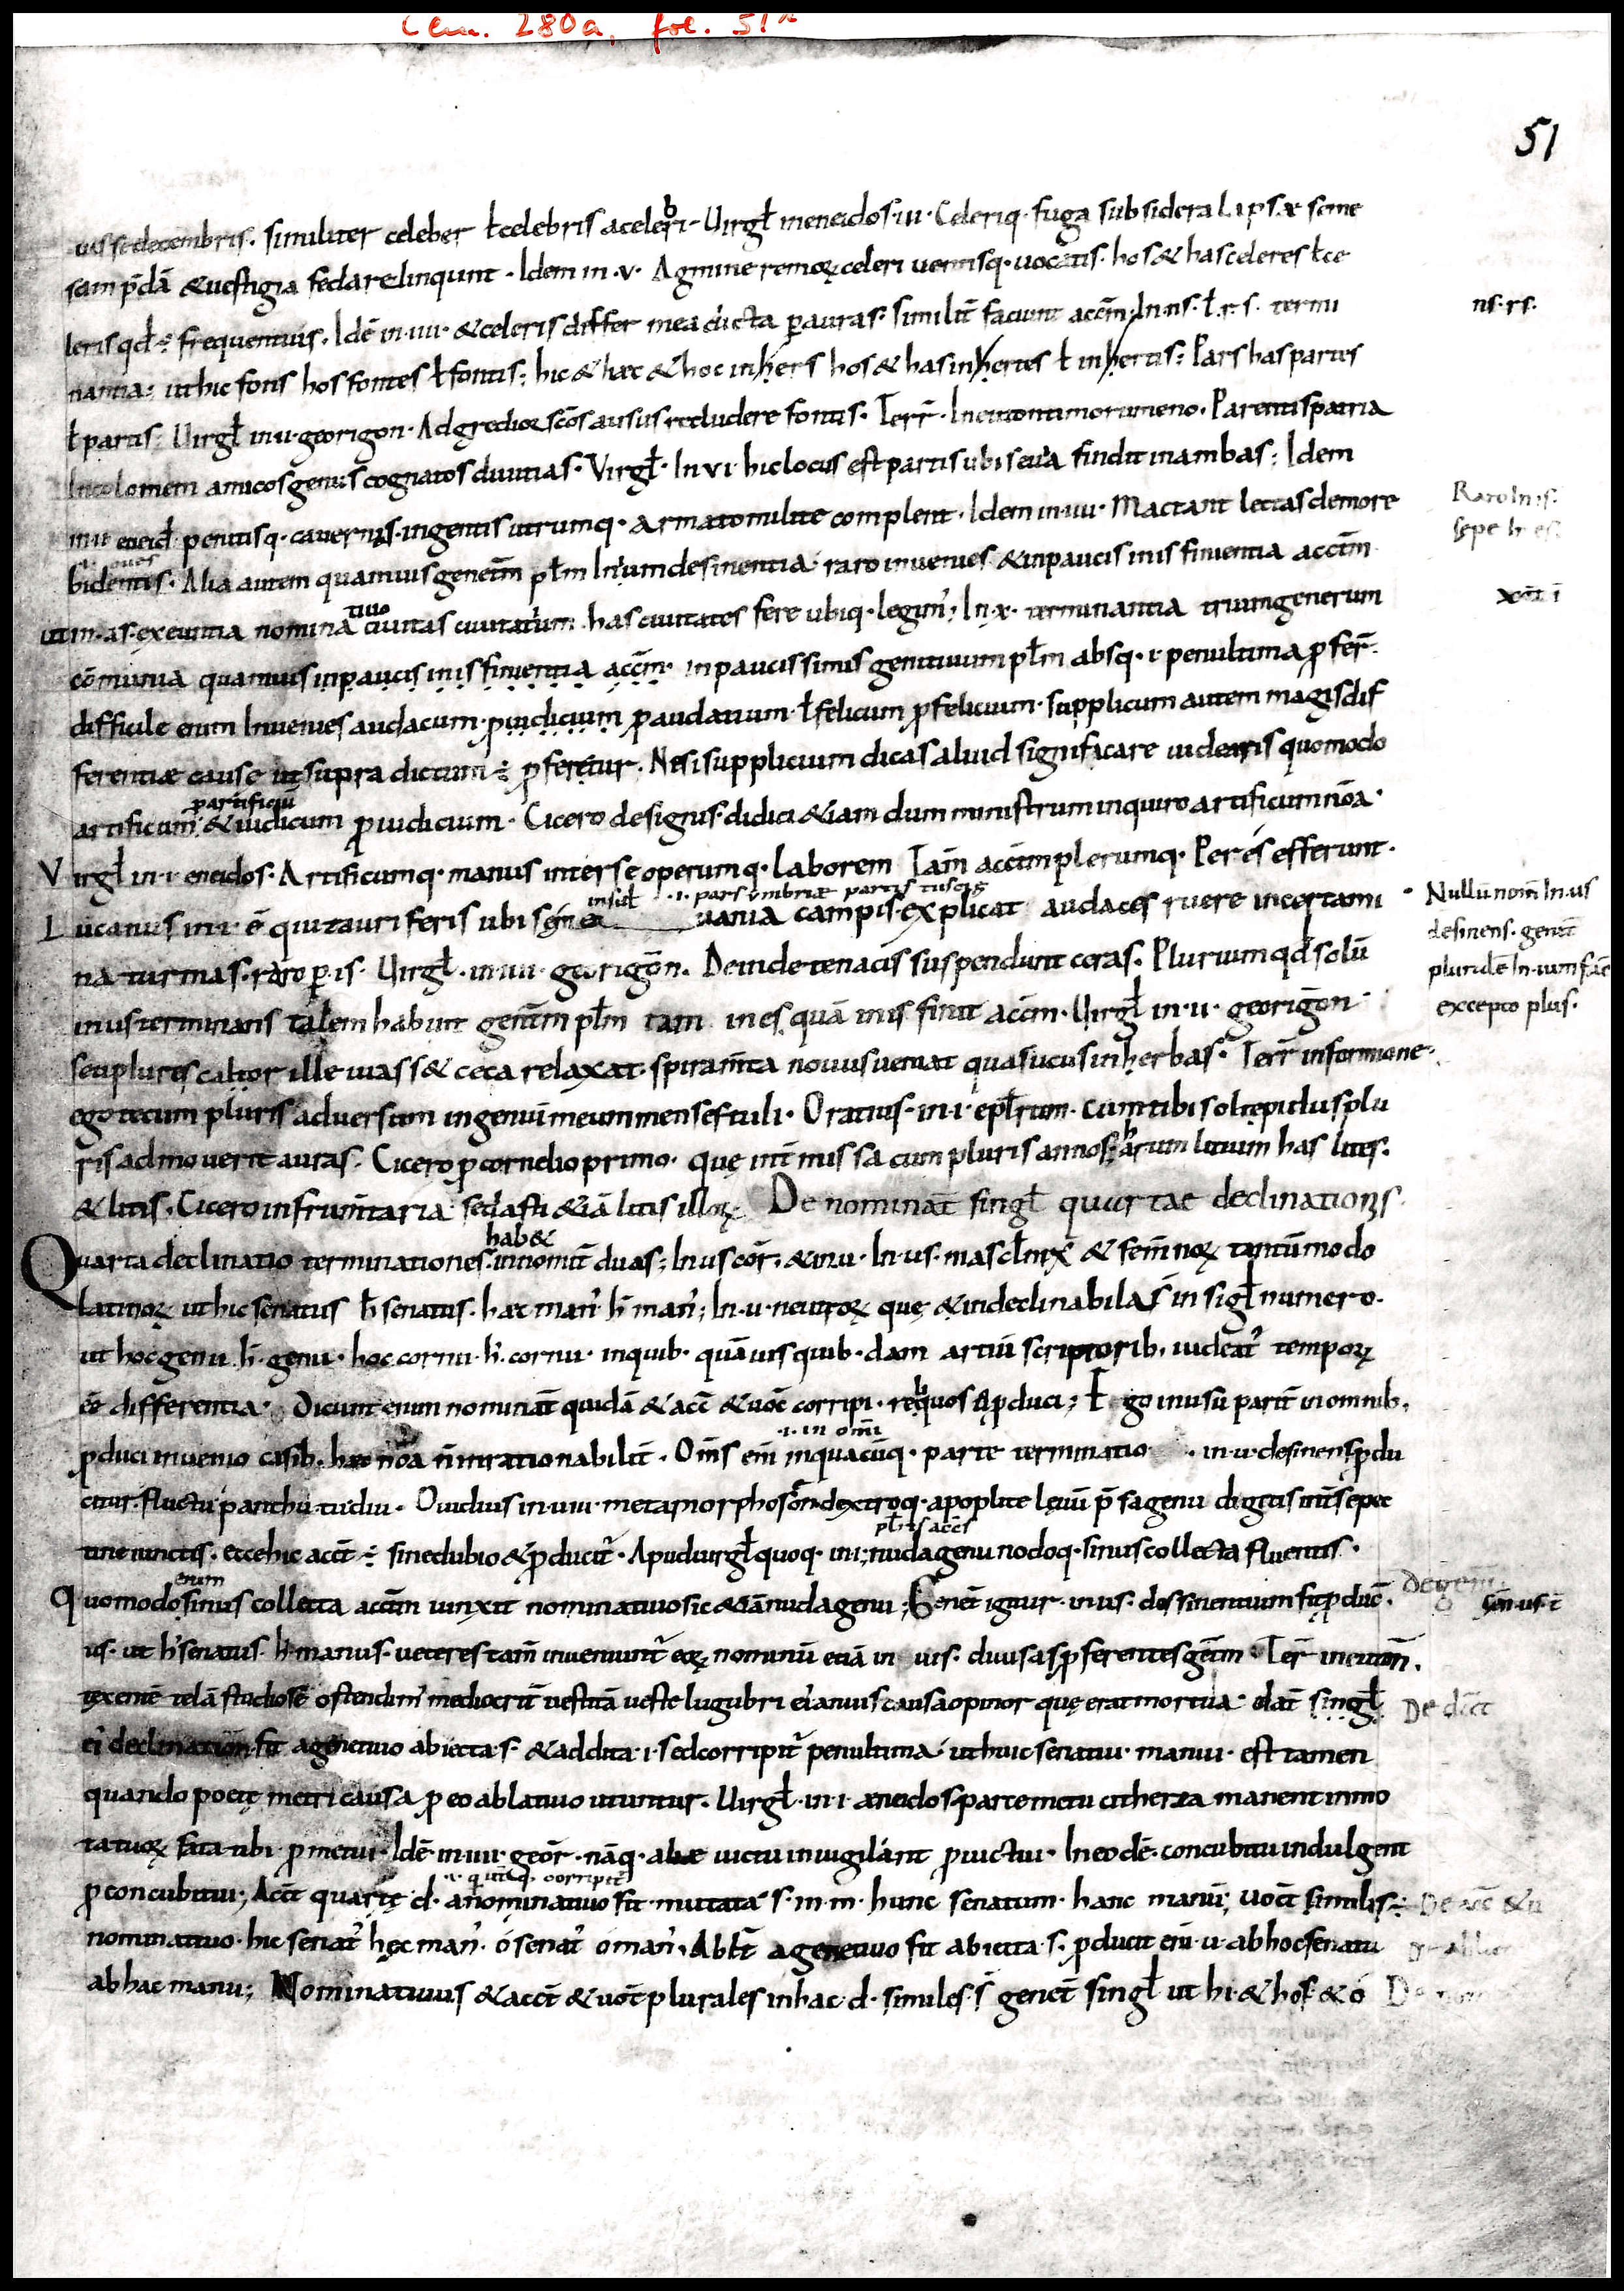 Clm. 280a, fol. 51r
51
uis sedecembris. similiter celeber ł celebris aceleri b Uirgł in eneidos·iii· Celeriq· fuga sub sidera lapsæ seme
sam p̄dā &uestigia feda relinqunt. Idem in ·v· Agmine remoꝝ celeri uentisq· uocatis· hos & has celeres ł ce
leris qđ ÷ frequentius. Idē in·iiii· & celeris differ mea dicta ꝑ auras: similit̄ faciunt accm̄; In·ns·ł·r·s· termi
ns·rs·
nantia; ut hic fons hos fontes ł fontis; hic & hæc & hoc inhers hos & has inhertes ł inhertis; Pars has partes
ł partis; Uirgł in·ii·georigon· Adgredior sc̄os ausus recludere fontis· Terr̄· In eutontimorumeno· Parentis patria
Incolomem amicos genus cognatos diuitias· Virgł· In vi· hic locus est partis ubi se uia findit in ambas; Idem
in·ii eneid penitisq· cauernis·ingentis utrumq· armato milite complent· Idem in·iiii· Mactant lectas demore
Raro In is·
sepe In es:
oues
bidentis· Alia autem quamuis genetm̄ płm In ium desinentia· raro inuenies & inpaucis in is finientia accm̄
ut in·as·exeuntia nomina tiuo ciuitas ciuitatum· has ciuitates fere ubiq· legim'; In·x· terminantia trium generum
cōmunia quamuis inpaucis in is finientia accm̄· inpaucissimis genitiuum płm absq· i· penultima ꝓfer̄·
difficile enim Inuenies audacum· ꝓ iudicium ꝓ audacium· ł felicum ꝓ felicium· supplicum autem magis dif
ferentiæ cause ut supra dictum ÷ ꝓfertur· Ne si supplicium dicas aliud significare uidearis quomodo
ꝓ artificiū
artificum· & iudicum ꝓ iudicium· Cicero de signis· didici & iam dum ministrum inquiro artificum nōa·
Virgł in·i·eneidos· Artificumq· manus inter se operumq· Laborem Tam̄ accm̄ plerumq· Per és efferunt·
·i· pars umbriæ partis tuscis
Nullū nom̄ In·us
Lucanus in·i· ē qui tauriferis ubi se uania campis· explicat audaces ruere in certami
desinens· genit̄
na turmas· raro ꝑ·is· Uirgł·in·iiii·georigōn· Deinde tenacis suspendunt ceras· Plurium qđ solū
plurale In·ium fac̄
in us terminans talem habuit genitm̄ płm tam in es quā in is finit accm̄· Uirgł in·ii· georigōn
excepto plus·
seu plures calor ille uias s& ceca relaxat· spiram̄ta nouus ueniat qua sucus in herbas· Terr̄ in formione·
ego tecum pluris aduersum ingenium meum menses tuli· Oratius·in·i·epłrum· cum tibi sol tepidus plu
ris admouerit auras· Cicero ꝓ cornelio primo· quę int̄missa cum pluris annos; harum litium has lites·
& litis· Cicero in frum̄taria· sed asti & iā litis illoꝝ; De nominat̄ singł quartae declinationis·
hab&
Quarta declinatio terminationes· in nomit̄ duas; In us cor̄· & in·u· In·us· mascłinoꝝ & fem̄noꝝ tantūmodo
latinoꝝ ut hic senatus h' senatus· hæc man' h' man'; In·u·neutroꝝ quę & indeclinabilia s̄ in sigł numero·
ut hoc genu h'·genu· hoc cornu·h'·cornu· inquib· quāuis quib·dam artiū scriptorib· uideat' tempoꝝ
ēē differentia· Dicunt enim nominat̄ quidā & acc̄ & uoc̄ corripi· reliquos ꝓduci; Ego in usu parit̄ in omnib·
·i· in om̄i
ꝓduci inuenio casib· hæc nōa n̄ inrationabilit̄· Om̄s em̄ in quacūq· parte terminatio ·in·u·desinens ꝓdu
citur· fluctu panthu· tu diu· Ouidius in·uiii·metamorphoson· dextroq· a poplite lęuū p̄ssa genu digitis int̄ se pec
tine iunctis· ecce hic acc̄t ÷ sine dubio & ꝓducit'· Apud uirgł quoq· in·i; nuda genu nodoq· sinus collecta fluentis·
enim
Quomodo sinus collecta acc̄m uinxit nominatiuo sic & iā nuda genu; Genet̄ igitur·in·us· dessinentium fit ꝓduc̄·
us· ut h' senatus· h' manus· ueteres tam̄ inueniunt' eoꝝ nominū etiā in uis· diuisas ꝓferentes gentm̄· Ter̄ in euton̄·
texente telā studiose ostendim' mediocrit̄ uestitā ueste lugubri ei' anuis causa opinor quę erat mortua· dat̄ singł
De dat̄
ei' declination̄ fit agenetiuo abiecta·s· & addita·i·sed corripit' penultima· ut huic senatui· manui· est tamen
quando poetę metri causa ꝓ eo ablatiuo utuntur· Uirgł·in·i·æneidos parce metu citherea manent inmo
tatuoꝝ fata tibi· ꝓ metui· Idē·in·iiii·geōr·nāq·aliæ uictu inuigilant ꝓ uictui· In eodē· concubitu indulgent
ꝓ concubitui; Acc̄t quartę·d· anominatiuo fit·mutata·s·in·m·hunc senatum· hanc manū; uoc̄t similis ÷
nominatiuo·hic senat' hęc man'· ó senat' ó man'· Abłt agenetiuo fit abiecta·s·ꝓducit em̄·u·ab hoc senatu
ab hac manu; Nominatiuus & acc̄t & uoc̄t plurales in hac·d·similes s̄ genet̄ singł ut hi·& hos & ó